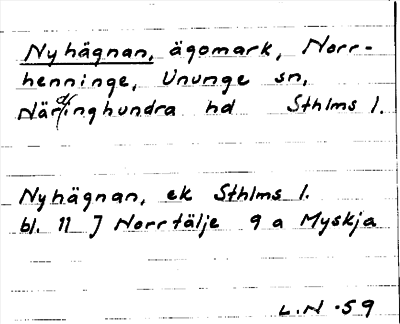 Nyhägnan, ägomark, Norr-
henninge, Ununge sn,
Närdinghundra hd Sthlms l.
Nyhägnan, ek Sthlms l.
bl. 11 J Norrtälje 9 a Myskja
L.N -59